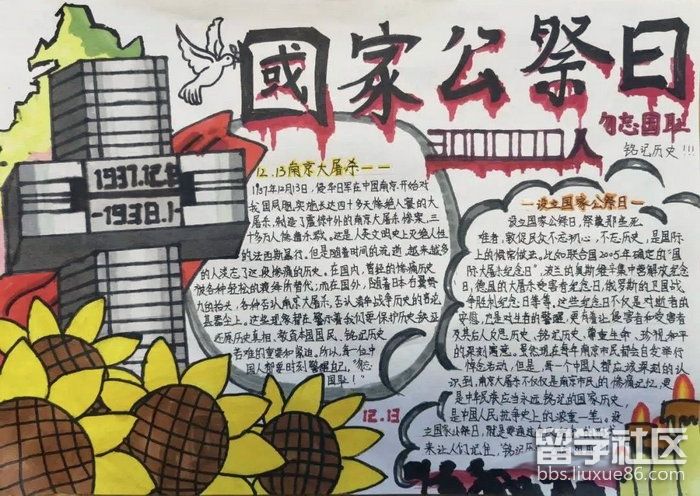 國家公祭日
300000人
勿忘国耻
铭记历史!!!
1937.12.
-1938.1-
12.13南京大屠杀——
1937年12月13日,侵华日军在中国南京开始对
我国同胞实施长达四十多天惨绝人寰的大
屠杀,制造了震惊中外的南京大屠杀惨案,三
十多万人惨遭杀戮。这是人类文明史上灭绝人性
的法西斯暴行。但是随着时间的流逝,越来越多
的人淡忘了这段惨痛的历史。在国内,曾经的惨痛历史
被各种轻松的
而在国外,随着日本右翼势
力的抬头,各种否认南京大屠杀、否认侵华战争历史的言论
甚嚣尘上。这些现象都在警示着我们要保护历史
还原历史真相,教育本国国民,铭记历史
苦难的重要和紧迫。所以,每一位中
国人都要时刻警醒自己,“勿忘
国耻!”
12.13
—设立国家公祭日—
设立国家公祭日,祭奠那些死
难者,敦促民众不忘初心,不忘历史,是国际
上的惯常做法。比如联合国2005年确定的“国
际大屠杀纪念日”,波兰的奥斯维辛集中营解放纪念
日,德国的大屠杀受害者纪念日,俄罗斯的卫国战
争胜利纪念日等等。这些纪念日不仅是对逝者的
安慰,也是对生者的警醒,更有着让侵害者和受害者
及其后人反思历史、铭记历史、尊重生命、珍视和平
的深刻寓意。虽然现在每年南京市民都会自发举行
悼念活动,但是,每一个中国人都应该深刻的认
识到,南京大屠杀不仅仅是南京市民的惨痛记忆,更
是中华民族应当永远铭记的国家历史,
是中国人民抗争史上的浓重一笔。设
立国家公祭日,就是要通过
来让人们记住,铭记历
留学社区
bbs.liuxue86.com